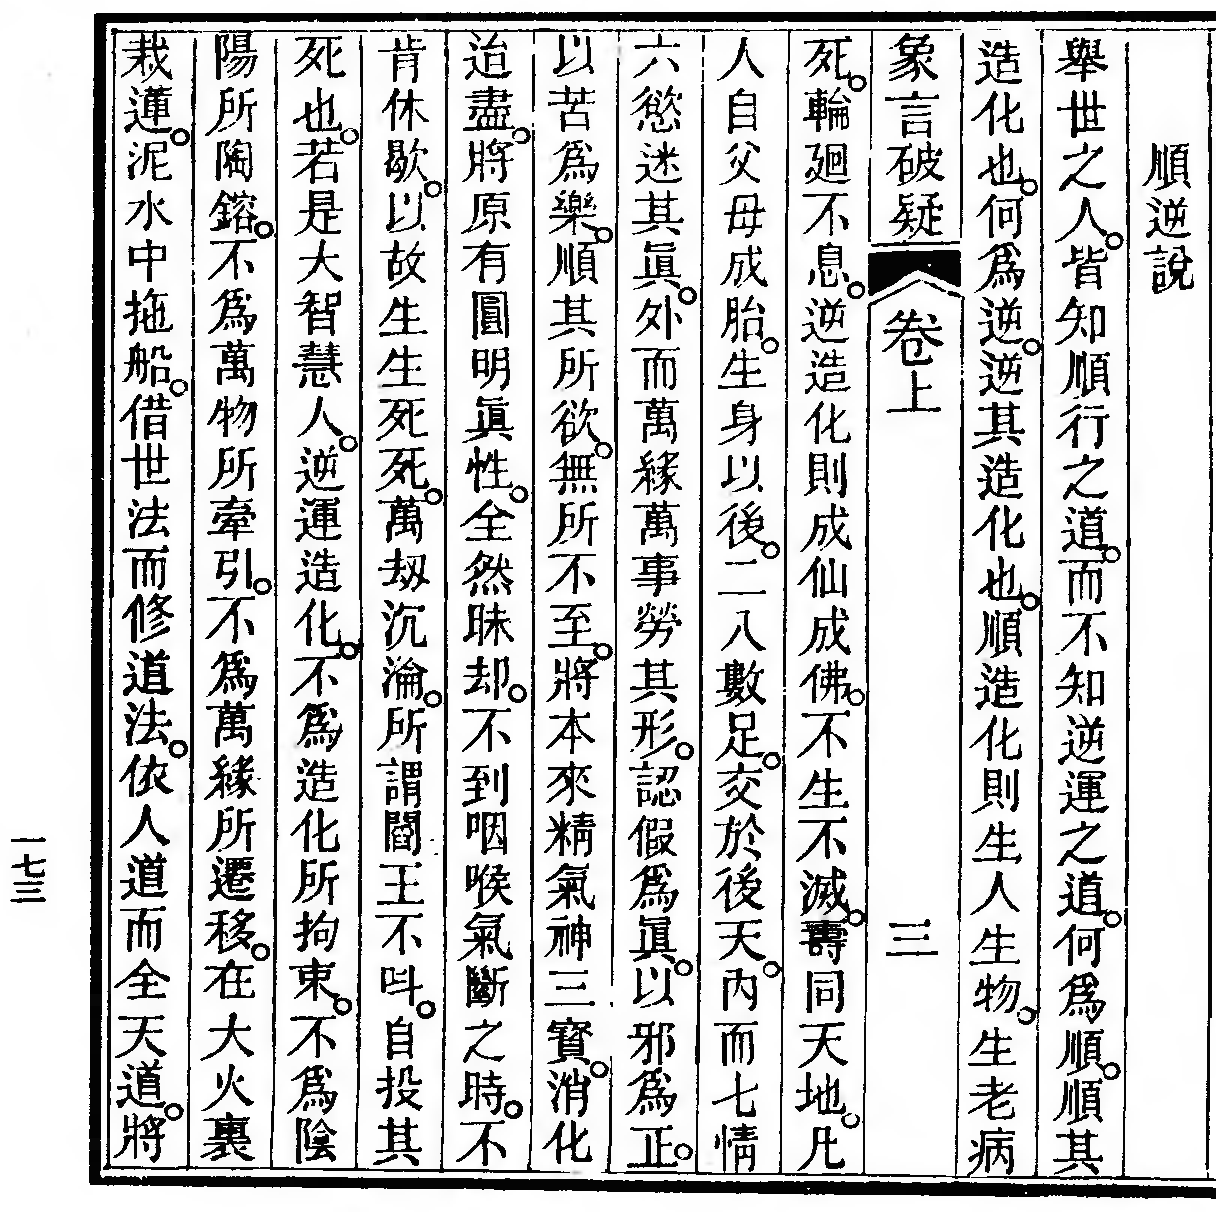 順逆說
舉世之人。皆知順行之道。而不知逆運之道。何爲順。順其
造化也。何爲逆。逆其造化也。順造化則生人生物。生老病
象言破疑 卷上 三
死。輪廻不息。逆造化則成仙成佛。不生不滅。壽同天地。凡
人自父母成胎。生身以後。二八數足。交於後天。內而七情
六慾迷其眞。外而萬緣萬事勞其形。認假爲眞。以邪爲正。
以苦爲樂。順其所欲。無所不至。將本來精氣神三寳。消化
迨盡。將原有圓明眞性。全然昧却。不到咽喉氣斷之時。不
肯休歇。以故生生死死。萬刼沉淪。所謂閻王不呌。自投其
死也。若是大智慧人。逆運造化。不爲造化所拘束。不爲陰
陽所陶鎔。不爲萬物所牽引。不爲萬緣所遷移。在大火裏
栽蓮。泥水中拖船。借世法而修道法。依人道而全天道。將
一七三